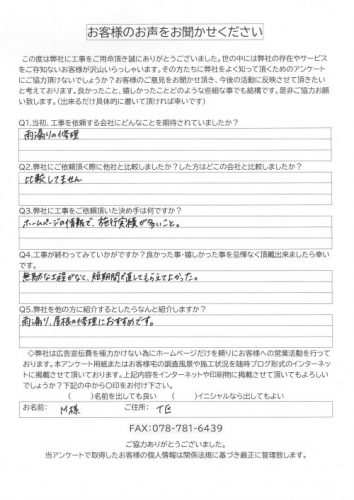 お客様のお声をお聞かせください
この度は弊社に工事をご用命頂き誠にありがとうございました。世の中には弊社の存在やサービス
をご存知ないお客様が沢山いらっしゃいます。その方たちに弊社をよく知って頂くためのアンケート
にご協力頂けないでしょうか？お客様のご意見をお聞かせ頂き、今後の活動に反映させて頂きたい
と考えております。良かったこと、嬉しかったことどのような些細な事でも結構です。是非ご協力お願
い致します。（出来るだけ具体的に書いて頂ければ幸いです）
Q1.当初、工事を依頼する会社にどんなことを期待されていましたか？
雨漏りの修理
Q2.弊社にご依頼頂く際に他社と比較しましたか？した方はどこの会社と比較しましたか？
比較してません
Q3.弊社に工事をご依頼頂いた決め手は何ですか？
ホームページの情報で、施行実績が多いこと。
Q4.工事が終わってみていかがですか？良かった事・嬉しかった事を忌憚なく頂戴出来ましたら幸い
です。
無駄な工程がなく、短期間で直してもらえてよかった。
Q5.弊社を他の方に紹介するとしたらなんと紹介しますか？
雨漏り、屋根の修理におすすめです。
◇弊社は広告宣伝費を極力かけない為にホームページだけを頼りにお客様への営業活動を行って
おります。本アンケート用紙またはお客様宅の調査風景や施工状況を随時ブログ形式のインターネッ
トに掲載させて頂いております。上記内容をインターネットや印刷物に掲載させて頂いてもよろしい
でしょうか？下記の中から〇印をお付け下さい。
（　　）名前を出しても良い　（　　）イニシャルなら出してもよい
お名前：　M様　ご住所：　T区
FAX:078-781-6439
ご協力ありがとうございました。
当アンケートで取得したお客様の個人情報は関係法規に基づき厳正に管理致します。